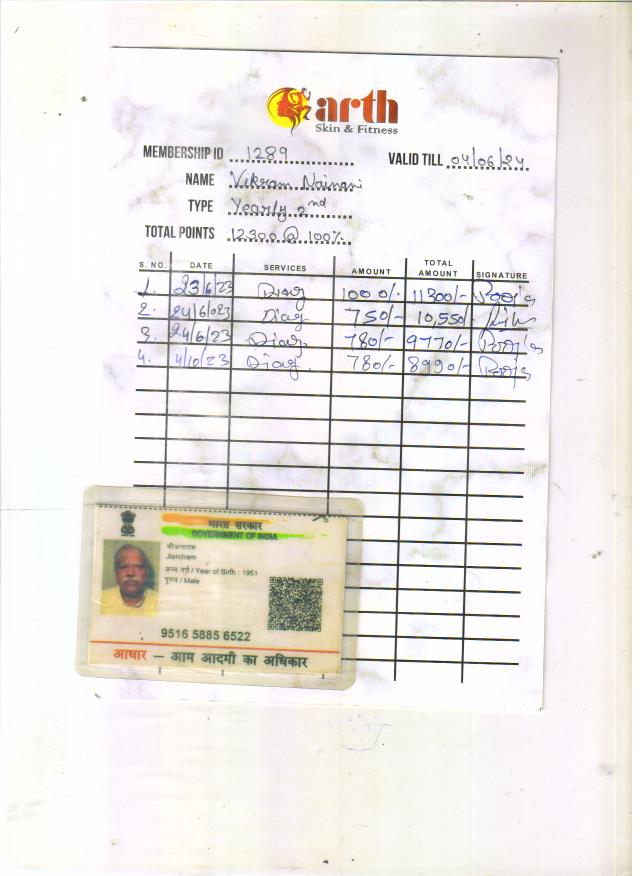 arth
Skin & Fitness
MEMBERSHIP ID 1289 VALID TILL 04/06/24
NAME Vikram Nainani
TYPE Yearly 2nd
TOTAL POINTS 12300 @ 100%
S. NO. DATE SERVICES AMOUNT TOTAL AMOUNT SIGNATURE
1. 23/6/23 1000/- 11300/-
2. 24/6/023 750/- 10,550/-
3. 24/6/23 780/- 9770/-
4. 4/10/23 780/- 8990/-
भारत सरकार
GOVERNMENT OF INDIA
जीआनदराम
Jiandram
जन्म वर्ष / Year of Birth : 1951
पुरुष / Male
9516 5885 6522
आधार — आम आदमी का अधिकार